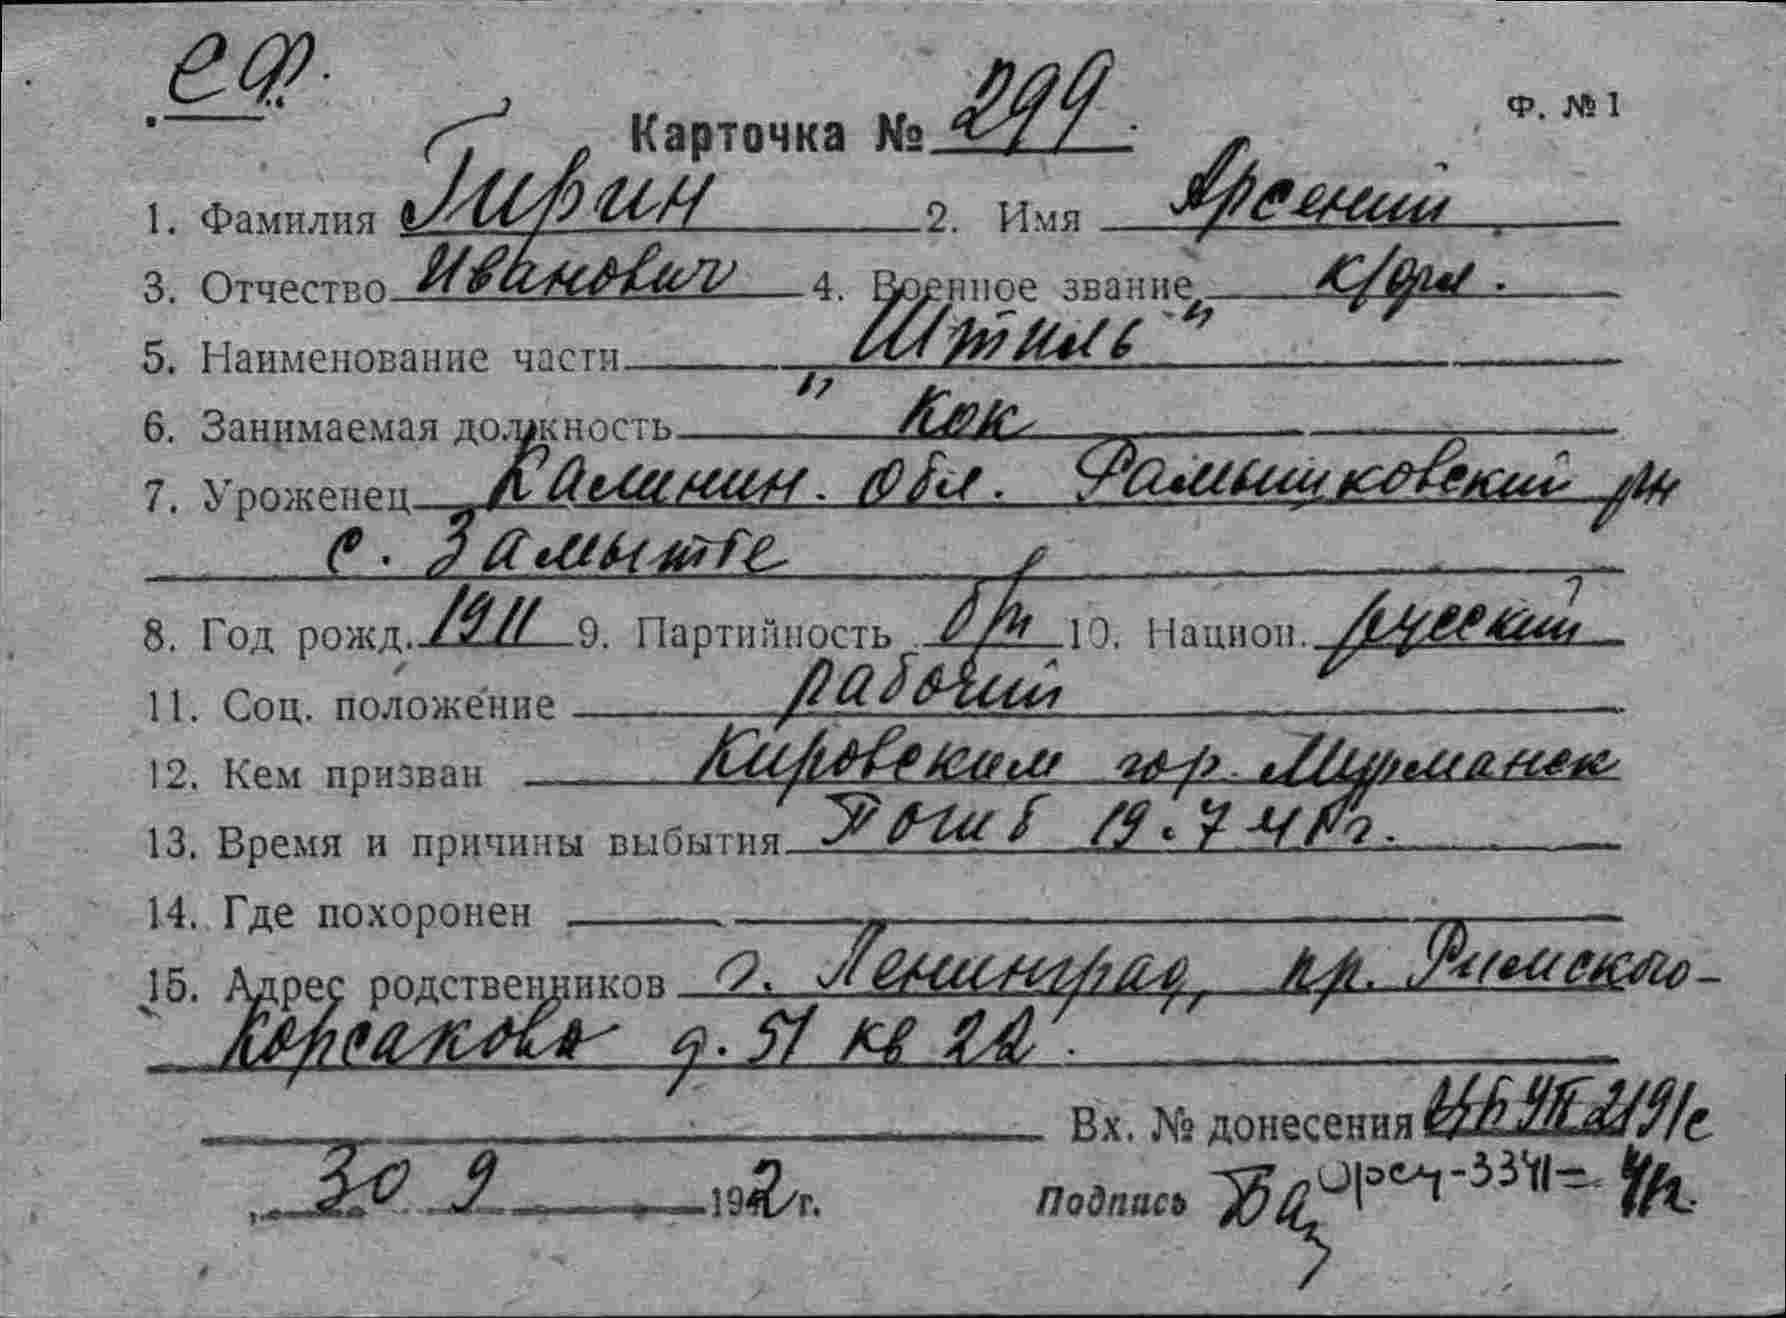 СФ.
Ф. № 1
Карточка № 299.
1. Фамилия Гирин 2. Имя Арсений
3. Отчество Иванович 4. Военное звание к/фл.
5. Наименование части "Штиль"
6. Занимаемая должность кок
7. Уроженец Калинин. обл. Рамышковский рн
с. Замытье
8. Год рожд. 1911 9. Партийность б/п 10. Национ. русский
11. Соц. положение рабочий
12. Кем призван Кировским гор. Мурманск
13. Время и причины выбытия Погиб 19.7 41 г.
14. Где похоронен
15. Адрес родственников г. Ленинград, пр. Римского-
Корсакова д. 51 кв 22.
Вх. № донесения 219/с
30 9 1942 г. Подпись